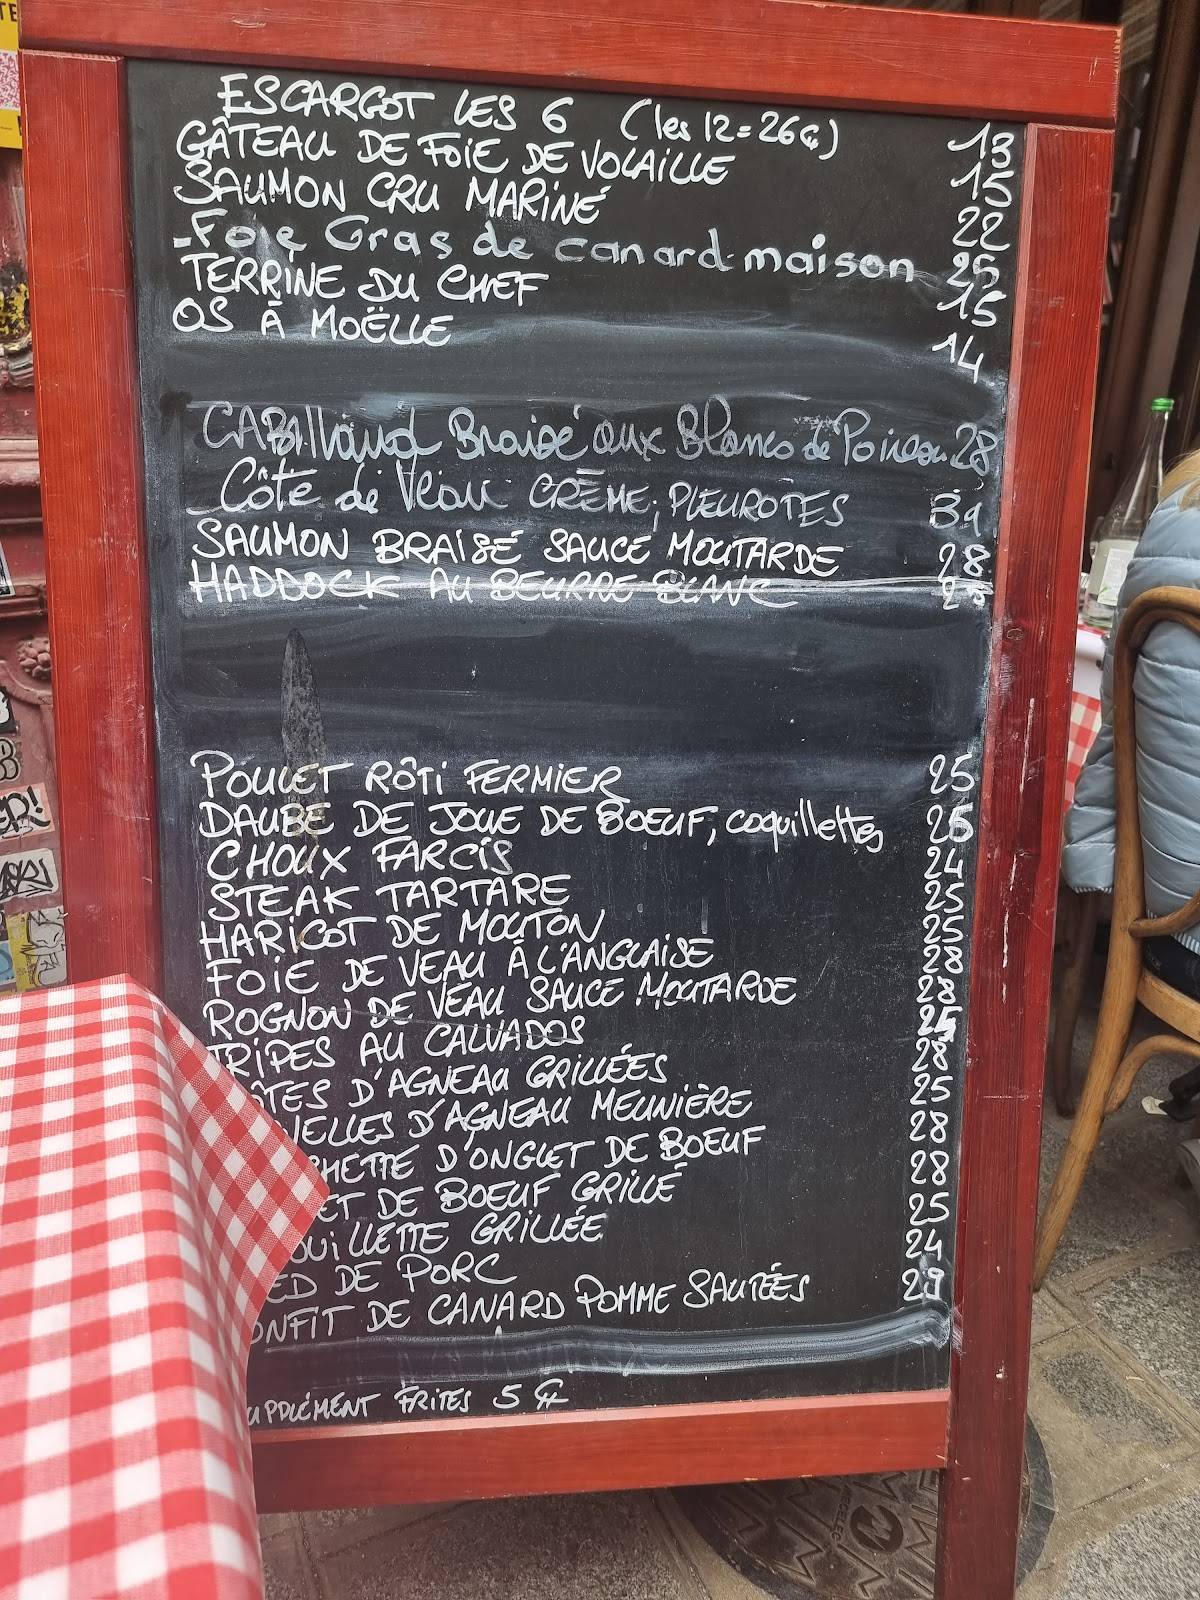 ESCARGOT LES 6 (les 12 = 26€) 13
GÂTEAU DE FOIE DE VOLAILLE 15
SAUMON CRU MARINÉ 22
- Foie Gras de canard maison 25
TERRINE DU CHEF 15
OS À MOËLLE 14
CABillaud Braisé aux Blancs de Poireau 28
Côte de Veau CRÈME, PLEUROTES
SAUMON BRAISÉ SAUCE MOUTARDE 28
HADDOCK AU BEURRE BLANC
POULET RÔTI FERMIER 25
DAUBE DE JOUE DE BOEUF, coquillettes 25
CHOUX FARCIS 24
STEAK TARTARE 25
HARICOT DE MOUTON 25
FOIE DE VEAU À L'ANGLAISE 28
ROGNON DE VEAU SAUCE MOUTARDE 28
TRIPES AU CALVADOS 25
ÔTES D'AGNEAU GRILLÉES 28
VELLES D'AGNEAU MEUNIÈRE 25
HETTE D'ONGLET DE BOEUF 28
ET DE BOEUF GRILLÉ 28
OUILLETTE GRILLÉE 25
ED DE PORC 24
ONFIT DE CANARD POMME SAUTÉES 29
UPPLÉMENT FRITES 5 €